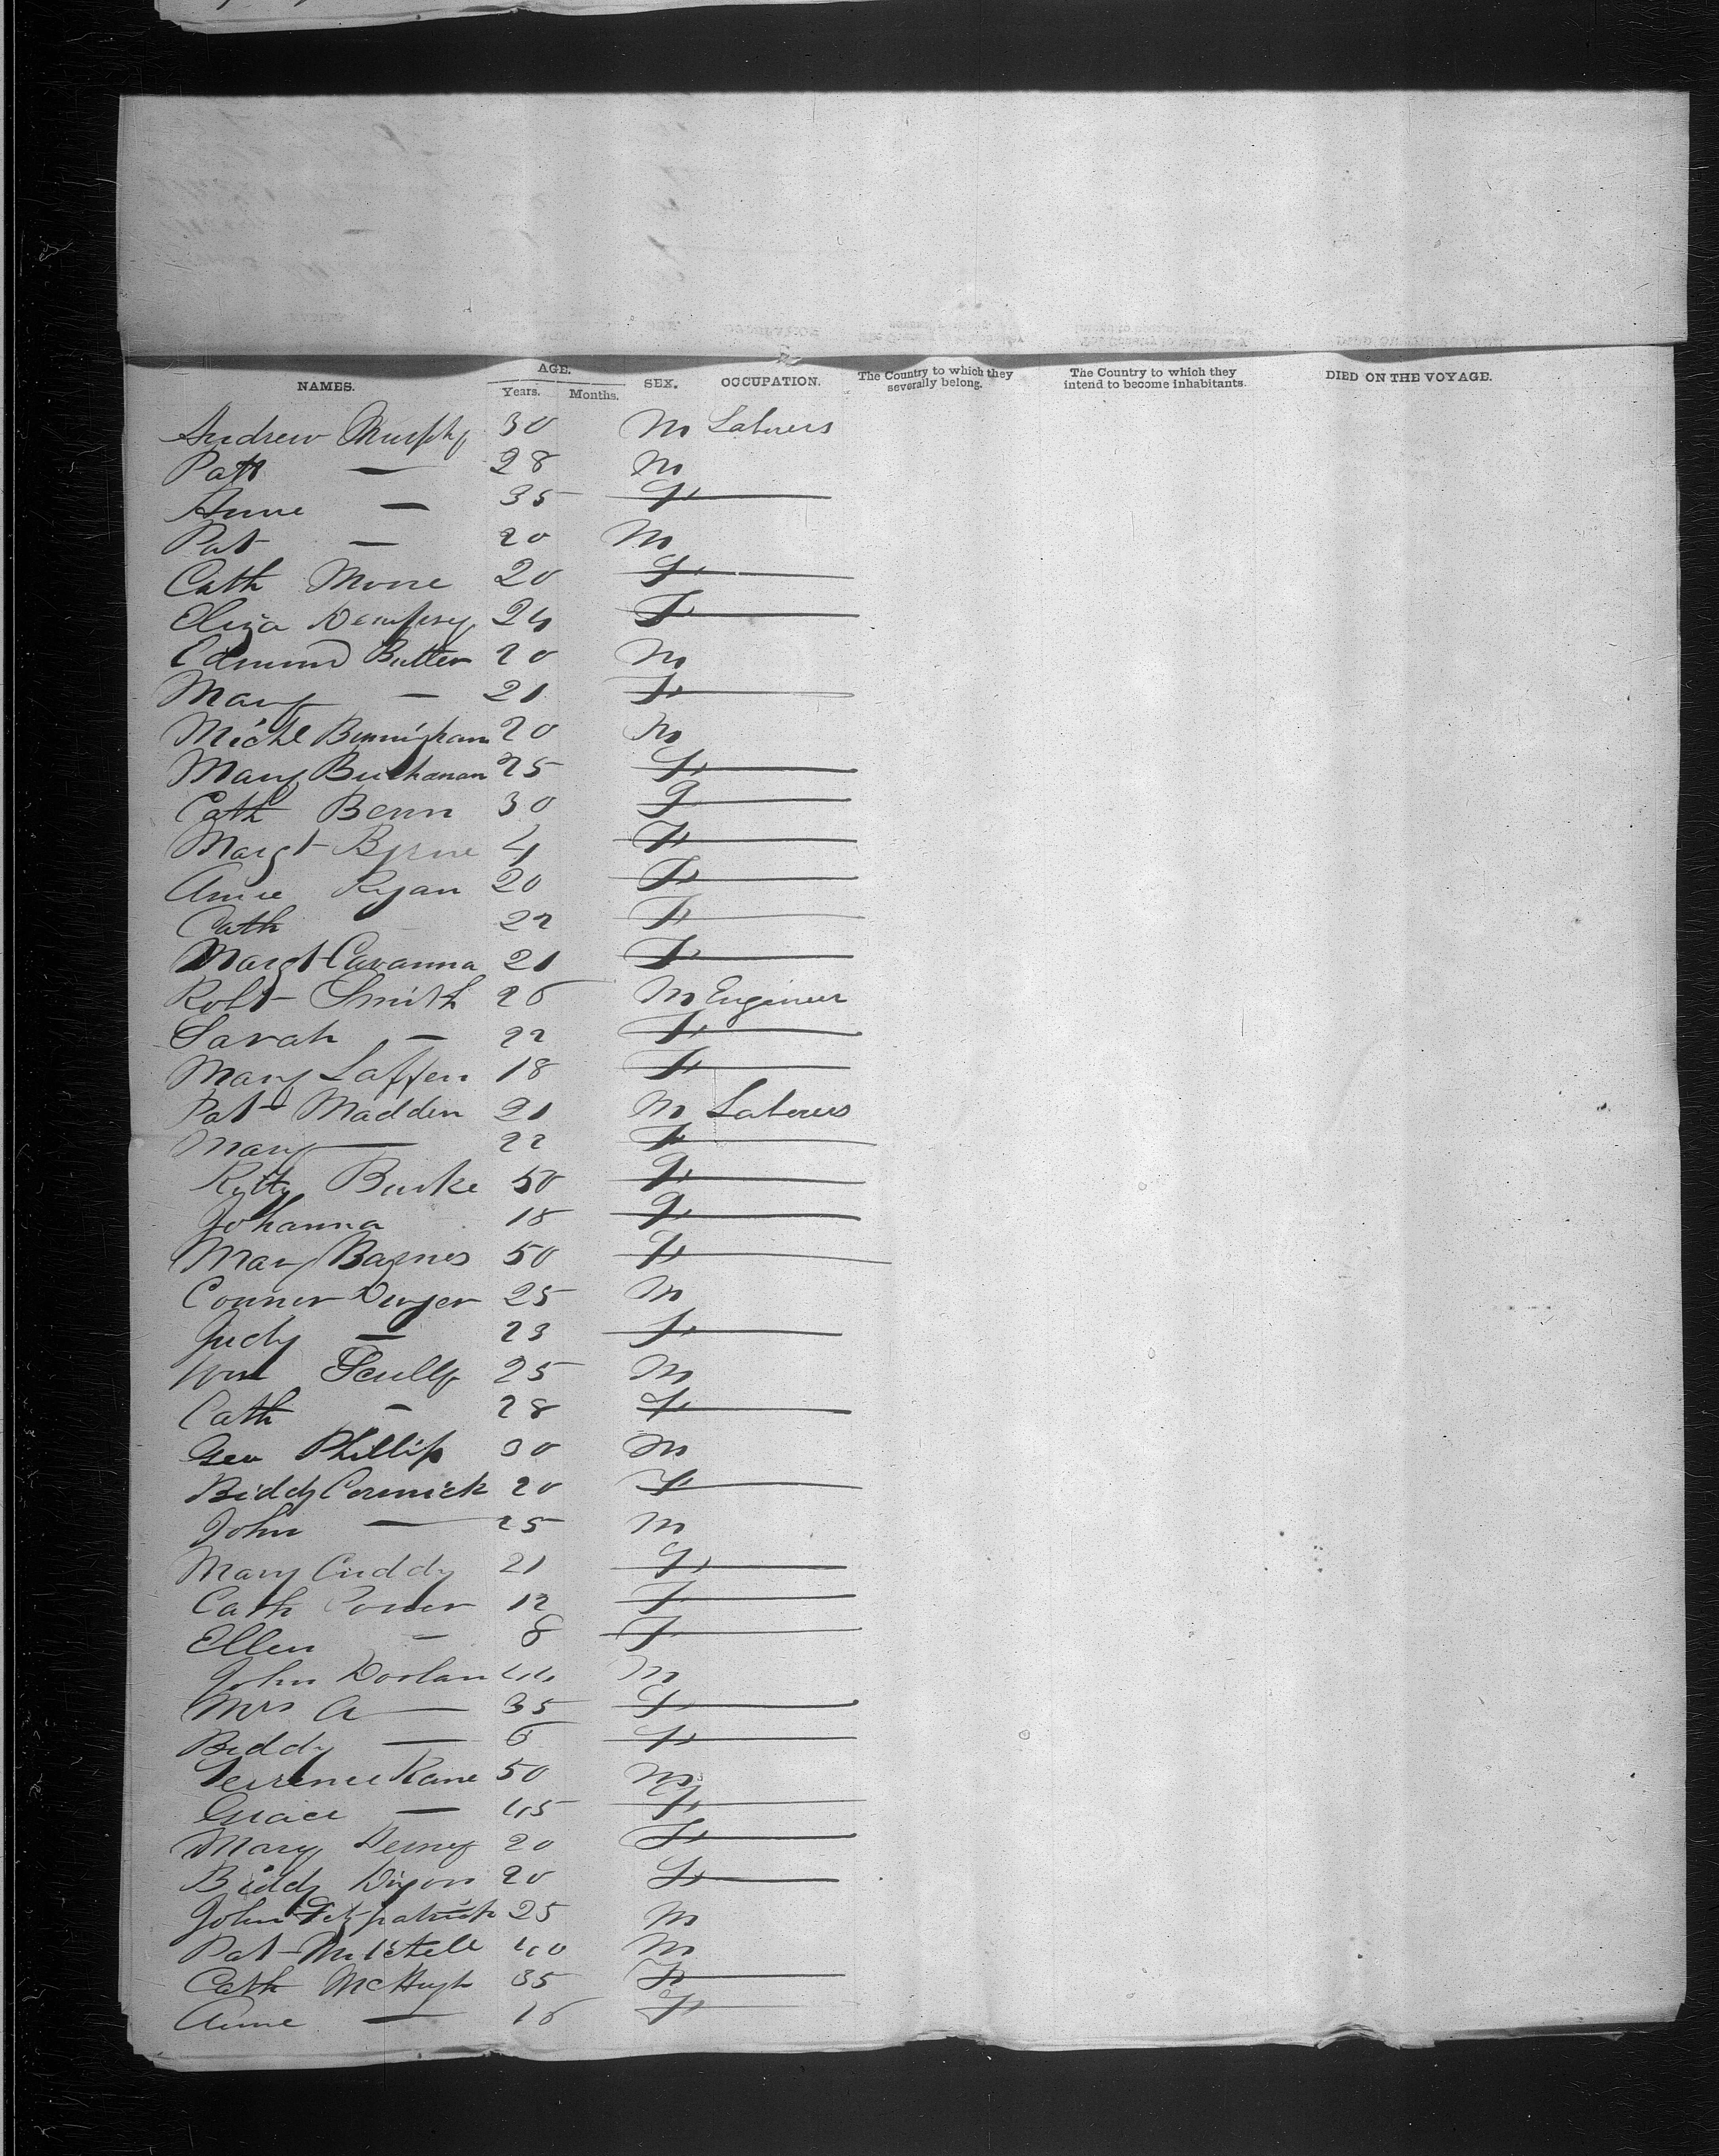 NAMES. AGE. Years. Months. SEX. OCCUPATION. The Country to which they severally belong. The Country to which they intend to become inhabitants. DIED ON THE VOYAGE.
Andrew Murphy 30 M Laborers
Patk — 28 M
Anne — 35 F
Pat — 20 M
Cath Moore 20 F
Eliza Dempsey 24 F
Edmund Butler 20 M
Mary — 21 F
Michl Bermigham 20 M
Mary Buchanan 25 F
Cath Benn 30 F
Margt Byrne 4 F
Anne Ryan 20 F
Cath — 22 F
Margt Cavanna 21 F
Robt Smith 26 M Engineer
Sarah — 22 F
Mary Laffen 18 F
Pat Madden 21 M Laborers
Mary — 22 F
Kitty Burke 50 F
Johanna 18 F
Mary Bagnes 50 F
Connor Dwyer 25 M
Judy — 23 F
Wm Scully 25 M
Cath - 28 F
Geo Phillip 30 M
Biddy Cormick 20 F
John — 25 M
Mary Cuddy 21 F
Cath Power 12 F
Ellen — 8 F
John Doolan 44 M
Mrs A — 35 F
Biddy — 6 F
Terrence Kane 50 M
Grace — 45 F
Mary Denny 20 F
Biddy Dixon 20 F
John Fitzpatrick 25 M
Pat Mitchell 40 M
Cath McHugh 35 F
Anne — 16 F